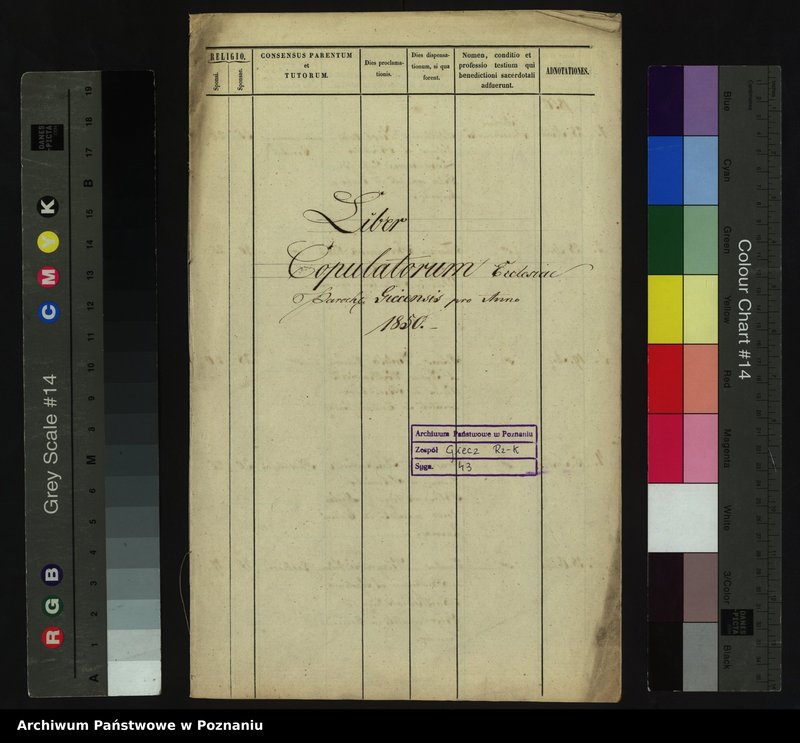 RELIGIO.
Sponsi.
Sponsae.
CONSENSUS PARENTUM
et
TUTORUM.
Dies proclama-
tionis.
Dies dispensa-
tionum, si quæ
forent.
Nomen, conditio et
professio testium qui
benedictioni sacerdotali
adfuerunt.
ADNOTATIONES.
Liber
Copulatorum Ecclesiæ
Paroch: Giecensis pro Anno
1850.
Archiwum Państwowe w Poznaniu
Zespół Giecz Rz-K
Sygn. 43
Grey Scale #14
DANES
PICTA
.COM
C M Y K
R G B
A 1 2 3 4 5 6 M 8 9 10 11 12 13 14 15 B 17 18 19
Colour Chart #14
Blue
Cyan
Green
Yellow
Red
Magenta
White
3/Color
Black
DANES
PICTA
.COM
Archiwum Państwowe w Poznaniu